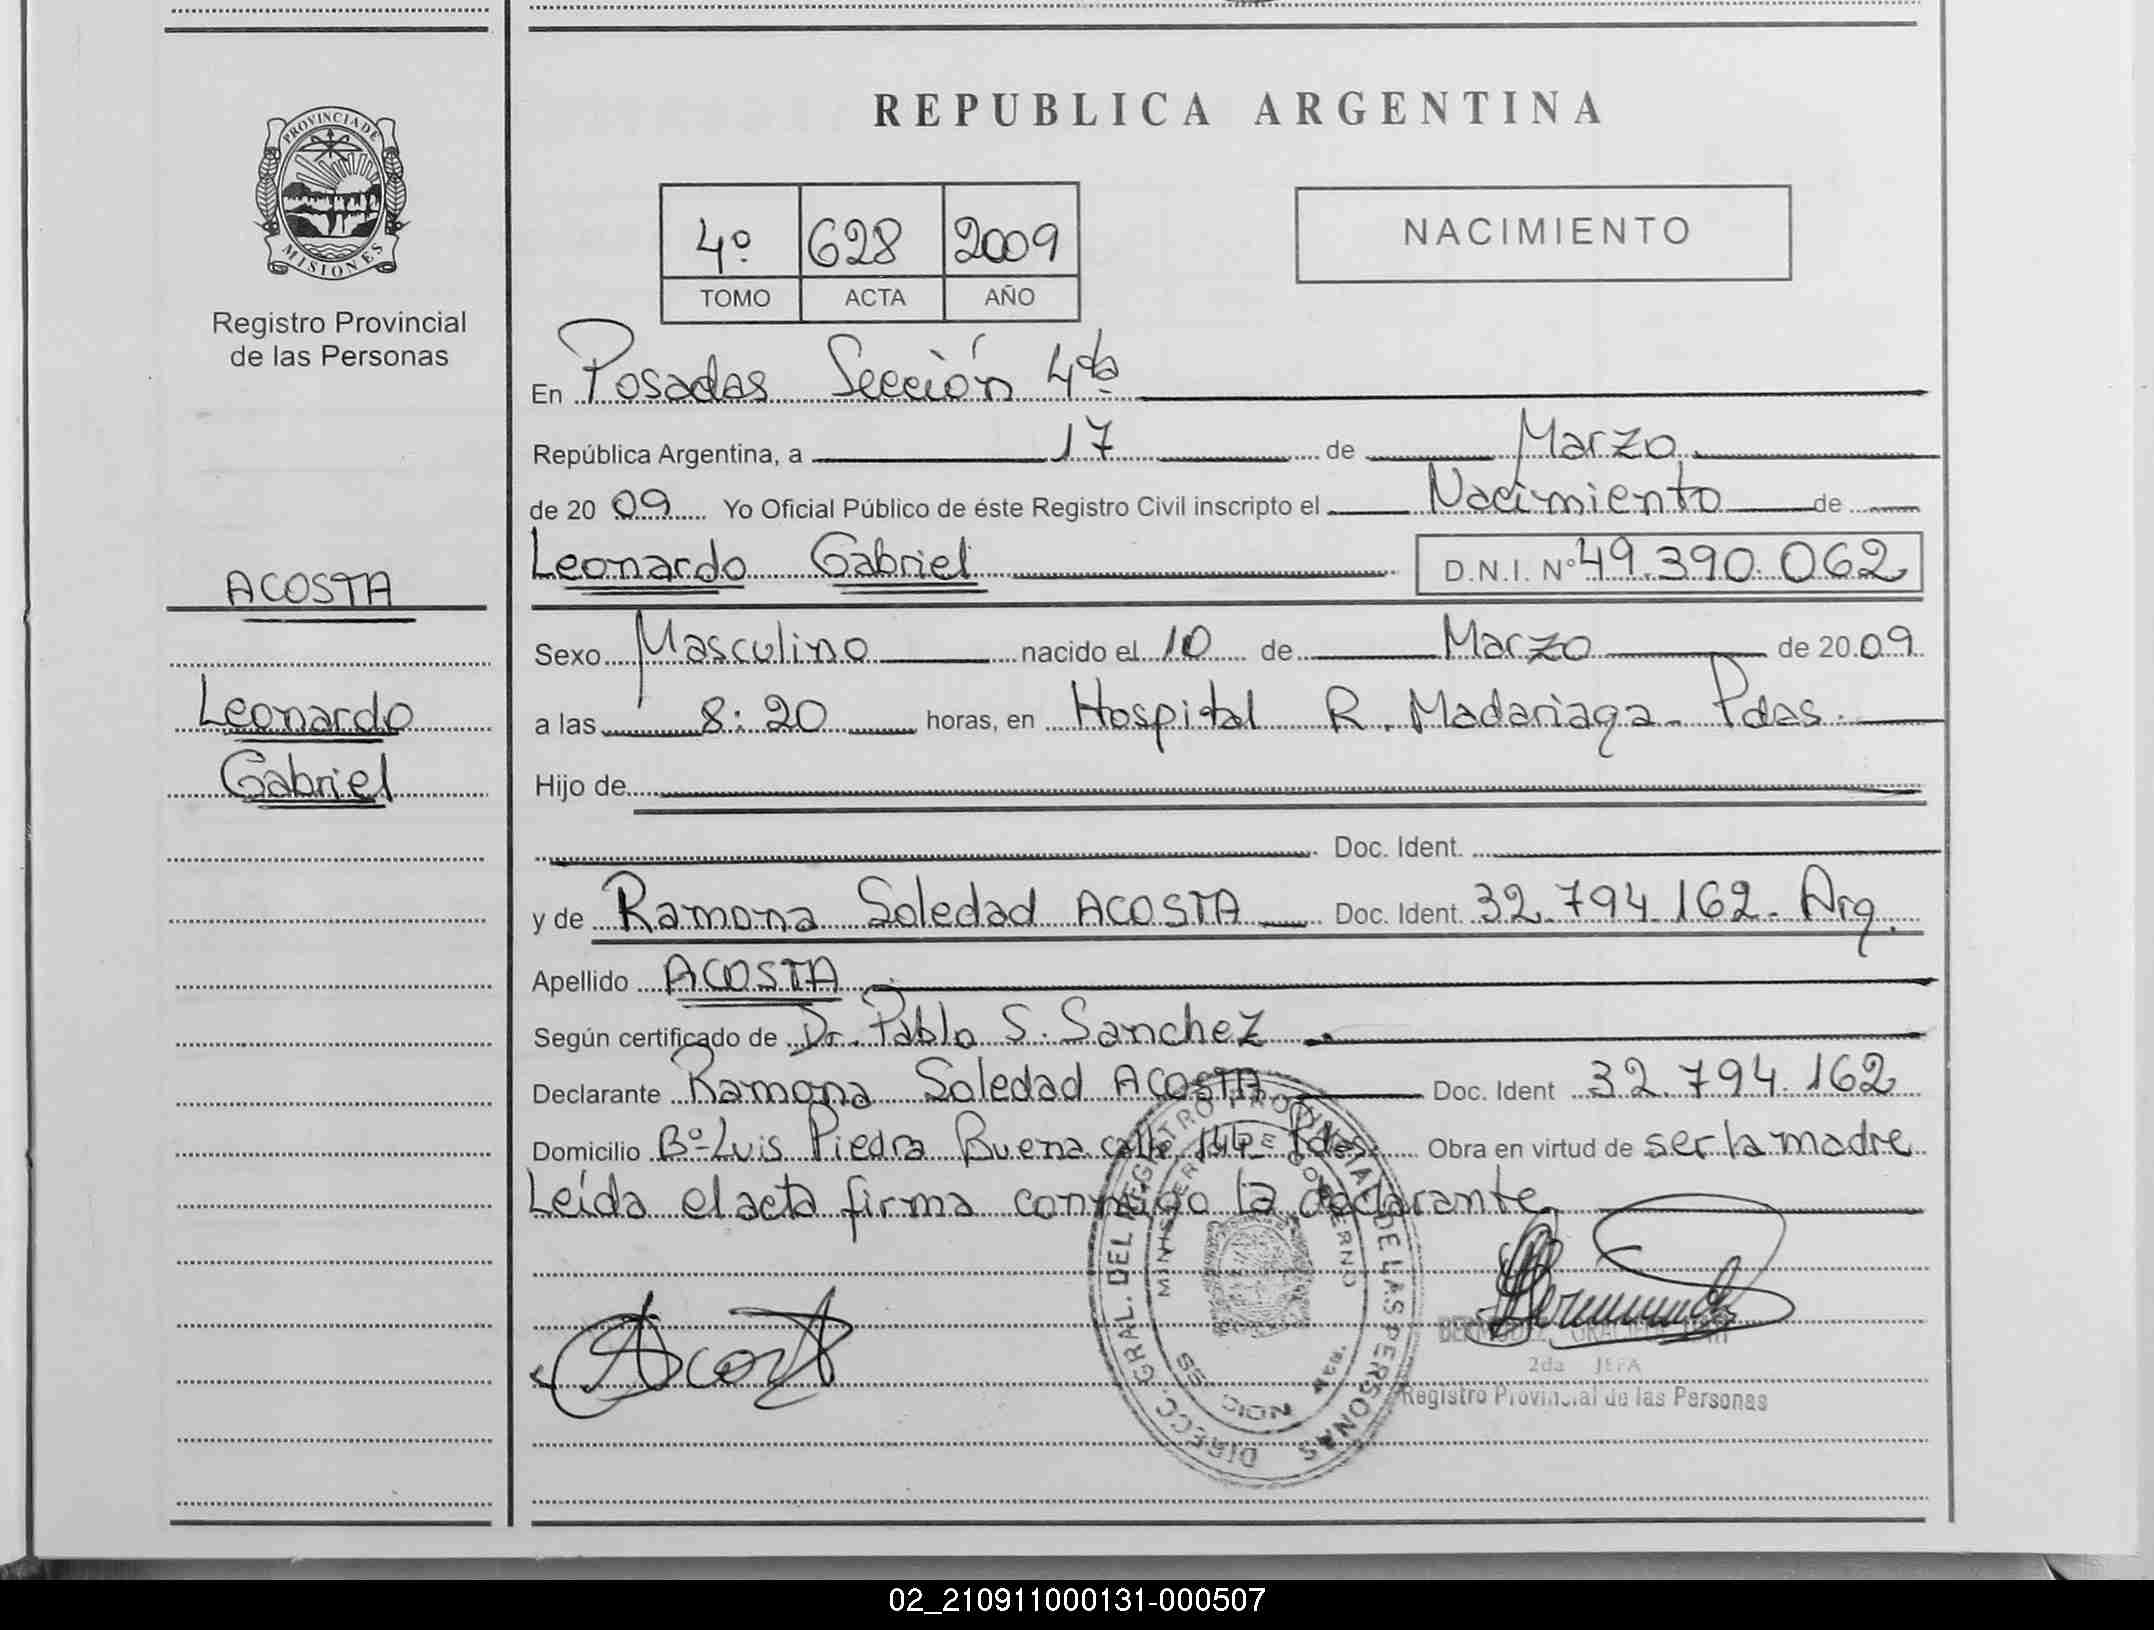 PROVINCIA DE
MISIONES
Registro Provincial
de las Personas
ACOSTA
Leonardo
Gabriel
REPUBLICA ARGENTINA
4º 628 2009
TOMO ACTA AÑO
NACIMIENTO
En Posadas Sección 4ta
República Argentina, a 17 de Marzo
de 20 09 Yo Oficial Público de éste Registro Civil inscripto el Nacimiento de
Leonardo Gabriel D.N.I. Nº 49.390.062
Sexo Masculino nacido el 10 de Marzo de 20 09
a las 8:20 horas, en Hospital R. Madariaga - Pdas.
Hijo de
Doc. Ident.
y de Ramona Soledad ACOSTA Doc. Ident. 32.794.162 - Arg.
Apellido ACOSTA
Según certificado de Dr. Pablo S. Sanchez
Declarante Ramona Soledad ACOSTA Doc. Ident 32.794.162
Domicilio Bº Luis Piedra Buena calle 144 - Pdas. Obra en virtud de ser la madre
Leída el acta firma conmigo la declarante
DIRECC. GRAL. DEL REGISTRO PROVINCIAL DE LAS PERSONAS
MINISTERIO DE GOBIERNO
Acosta
2da JEFA
Registro Provincial de las Personas
02_210911000131-000507